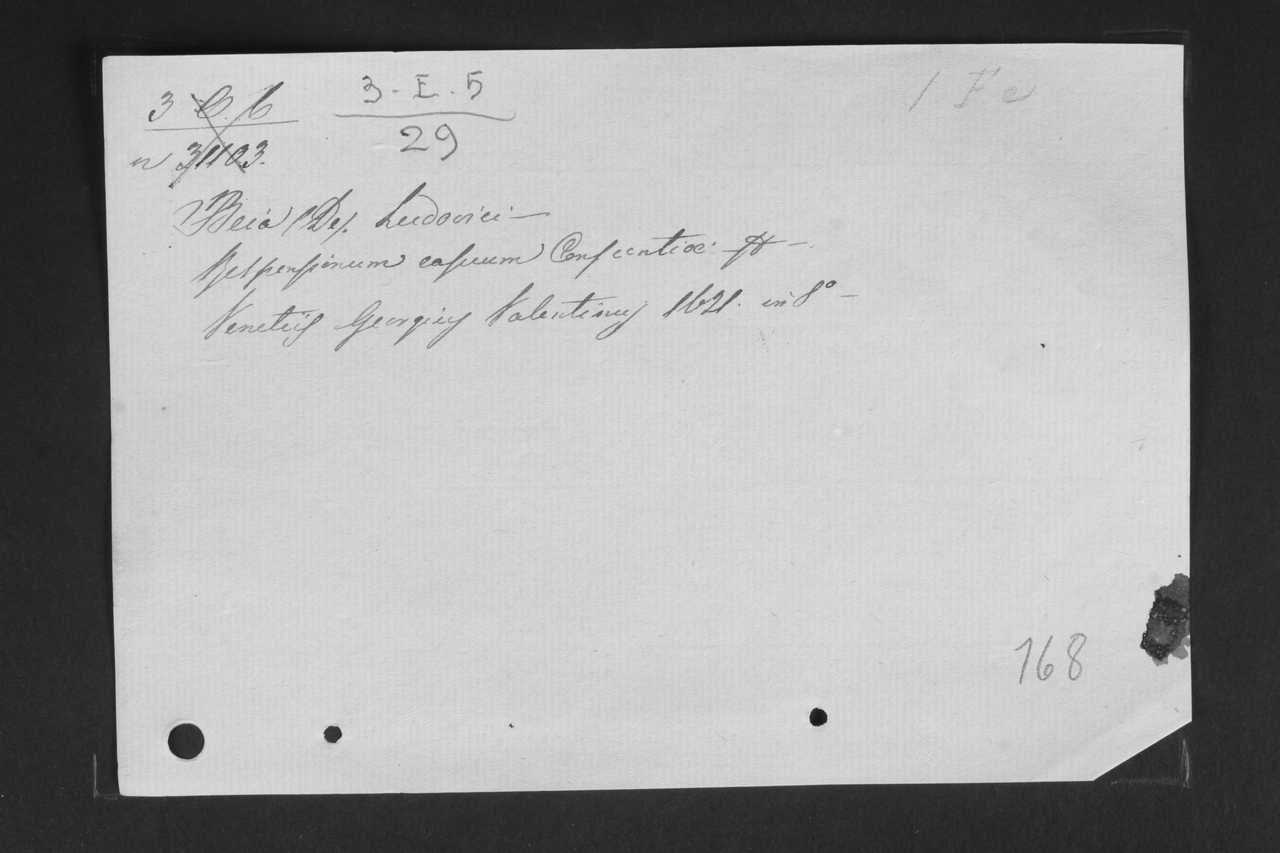 3 C. 6
3 - E . 5
29
1 Fe
n 31103.
Beia /De/. Ludovici —
Responsionum casuum Conscentiæ: —
Venetiis Georgius Valentinus 1621. in 8° —
168